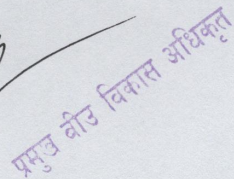 प्रमुख बीउ विकास अधिकृत